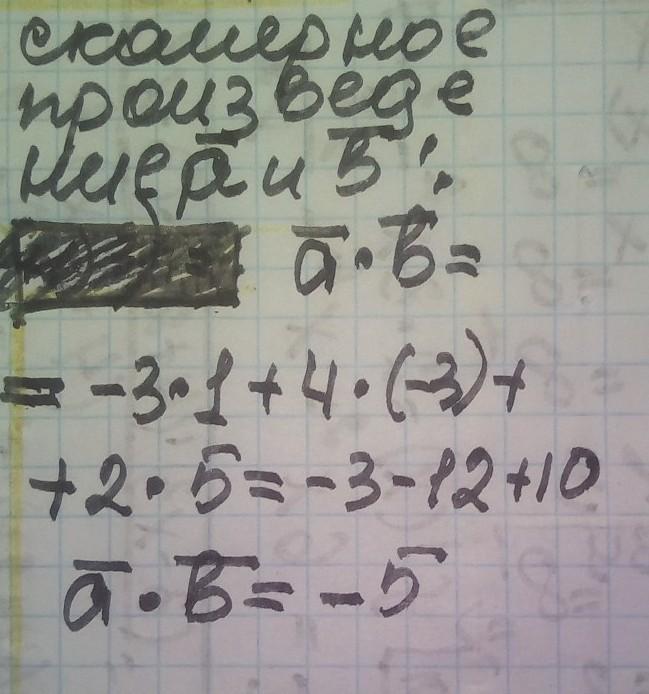 скалерное
произведе
ние a̅ и b̅ :
a̅ · b̅ =
= -3·1 + 4·(-3) +
+ 2·5 = -3 - 12 + 10
a̅ · b̅ = -5